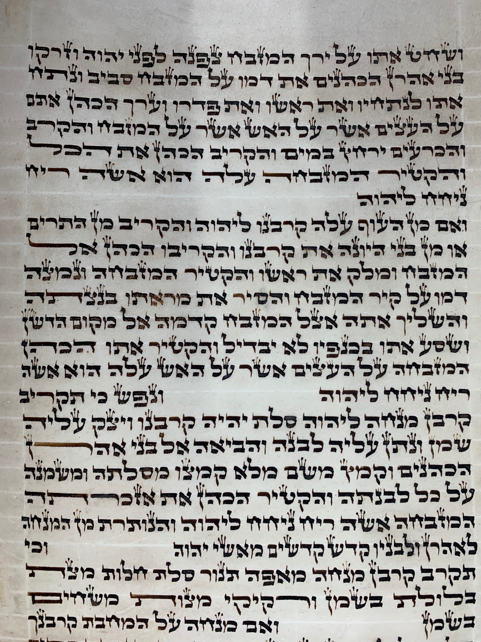 ושחט אתו על ירך המזבח צפנה לפני יהוה וזרקו
בני אהרן הכהנים את דמו על המזבח סביב ונתח
אתו לנתחיו ואת ראשו ואת פדרו וערך הכהן אתם
על העצים אשר על האש אשר על המזבח והקרב
והכרעים ירחץ במים והקריב הכהן את הכל
והקטיר המזבחה עלה הוא אשה ריח
ניחח ליהוה
ואם מן העוף עלה קרבנו ליהוה והקריב מן התרים
או מן בני היונה את קרבנו והקריבו הכהן אל
המזבח ומלק את ראשו והקטיר המזבחה ונמצה
דמו על קיר המזבח והסיר את מראתו בנצתה
והשליך אתה אצל המזבח קדמה אל מקום הדשן
ושסע אתו בכנפיו לא יבדיל והקטיר אתו הכהן
המזבחה על העצים אשר על האש עלה הוא אשה
ריח ניחח ליהוה ונפש כי תקריב
קרבן מנחה ליהוה סלת יהיה קרבנו ויצק עליה
שמן ונתן עליה לבנה והביאה אל בני אהרן
הכהנים וקמץ משם מלא קמצו מסלתה ומשמנה
על כל לבנתה והקטיר הכהן את אזכרתה
המזבחה אשה ריח ניחח ליהוה והנותרת מן המנחה
לאהרן ולבניו קדש קדשים מאשי יהוה וכי
תקרב קרבן מנחה מאפה תנור סלת חלות מצת
בלולת בשמן ורקיקי מצות משחים
בשמן ואם מנחה על המחבת קרבנך